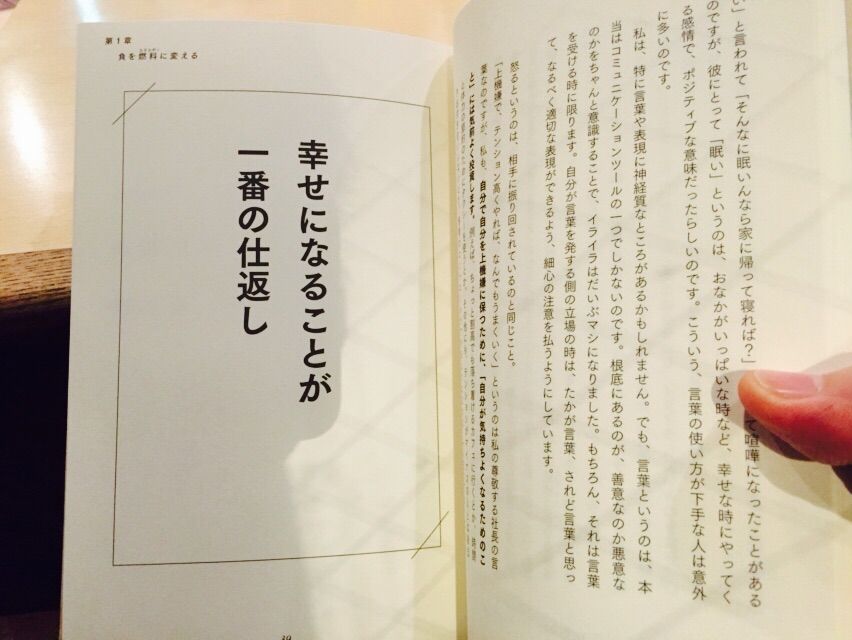 い」と言われて「そんなに眠いんなら家に帰って寝れば?」て喧嘩になったことがある
のですが、彼にとって「眠い」というのは、おなかがいっぱいな時など、幸せな時にやってく
る感情で、ポジティブな意味だったらしいのです。こういう、言葉の使い方が下手な人は意外
に多いのです。
私は、特に言葉や表現に神経質なところがあるかもしれません。でも、言葉というのは、本
当はコミュニケーションツールの一つでしかないのです。根底にあるのが、善意なのか悪意な
のかをちゃんと意識することで、イライラはだいぶマシになりました。もちろん、それは言葉
を受ける時に限ります。自分が言葉を発する側の立場の時は、たかが言葉、されど言葉と思っ
て、なるべく適切な表現ができるよう、細心の注意を払うようにしています。
怒るというのは、相手に振り回されているのと同じこと。
「上機嫌で、テンション高くやれば、なんでもうまくいく」というのは私の尊敬する社長の言
葉なのですが、私も、自分で自分を上機嫌に保つために、「自分が気持ちよくなるためのこ
と」には気前よく投資します。例えば、ちょっと割高でも落ち着けるカフェに行くとか、時間
第1章
負を燃料に変える
幸せになることが
一番の仕返し